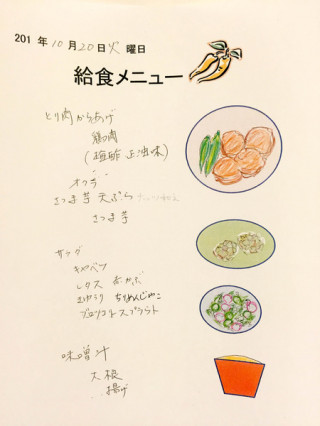 201 年10月20日火曜日
給食メニュー
とり肉からあげ
鶏肉
(塩酢 正油味)
オクラ
さつま芋 天ぷら
さつま芋
サラダ
キャベツ
レタス おかか
きゅうり ちりめんじゃこ
ブロッコリースプラウト
味噌汁
大根
揚げ